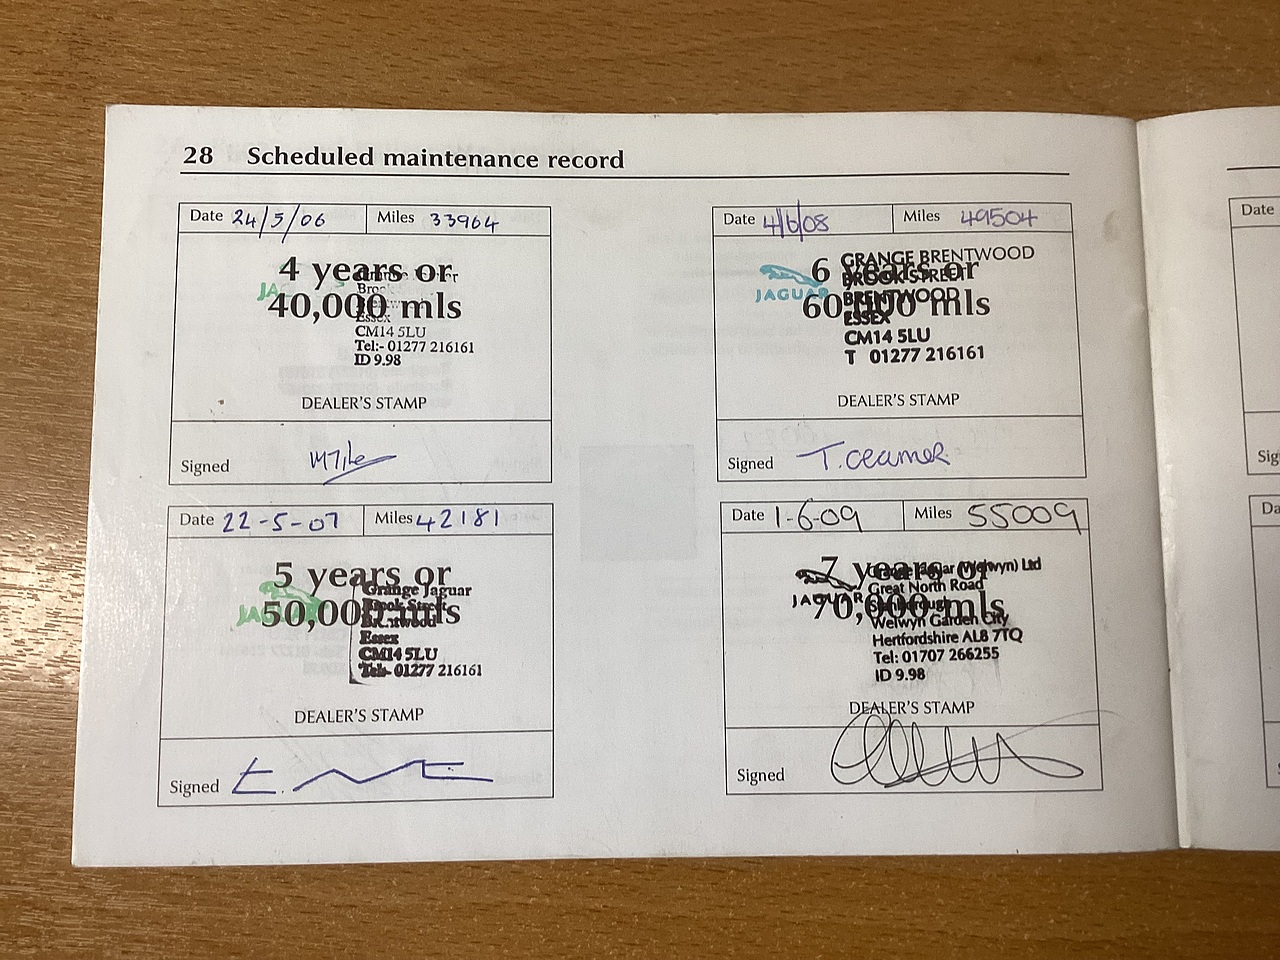 28 Scheduled maintenance record
Date 24/5/06 Miles 33964
4 years or
40,000 mls
Essex
CM14 5LU
Tel:- 01277 216161
ID 9.98
DEALER'S STAMP
Signed
Date 22-5-07 Miles 42181
5 years or
50,000 mls
JAGUAR
Grange Jaguar
Brook Street
Brentwood
Essex
CM14 5LU
Tel:- 01277 216161
DEALER'S STAMP
Signed
Date 4/6/08 Miles 49504
6 years or
60,000 mls
JAGUAR
GRANGE BRENTWOOD
BROOK STREET
BRENTWOOD
ESSEX
CM14 5LU
T 01277 216161
DEALER'S STAMP
Signed
Date 1-6-09 Miles 55009
7 years or
70,000 mls
JAGUAR
Jaguar (Welwyn) Ltd
Great North Road
Welwyn Garden City
Hertfordshire AL8 7TQ
Tel: 01707 266255
ID 9.98
DEALER'S STAMP
Signed
Date
Sig
Da